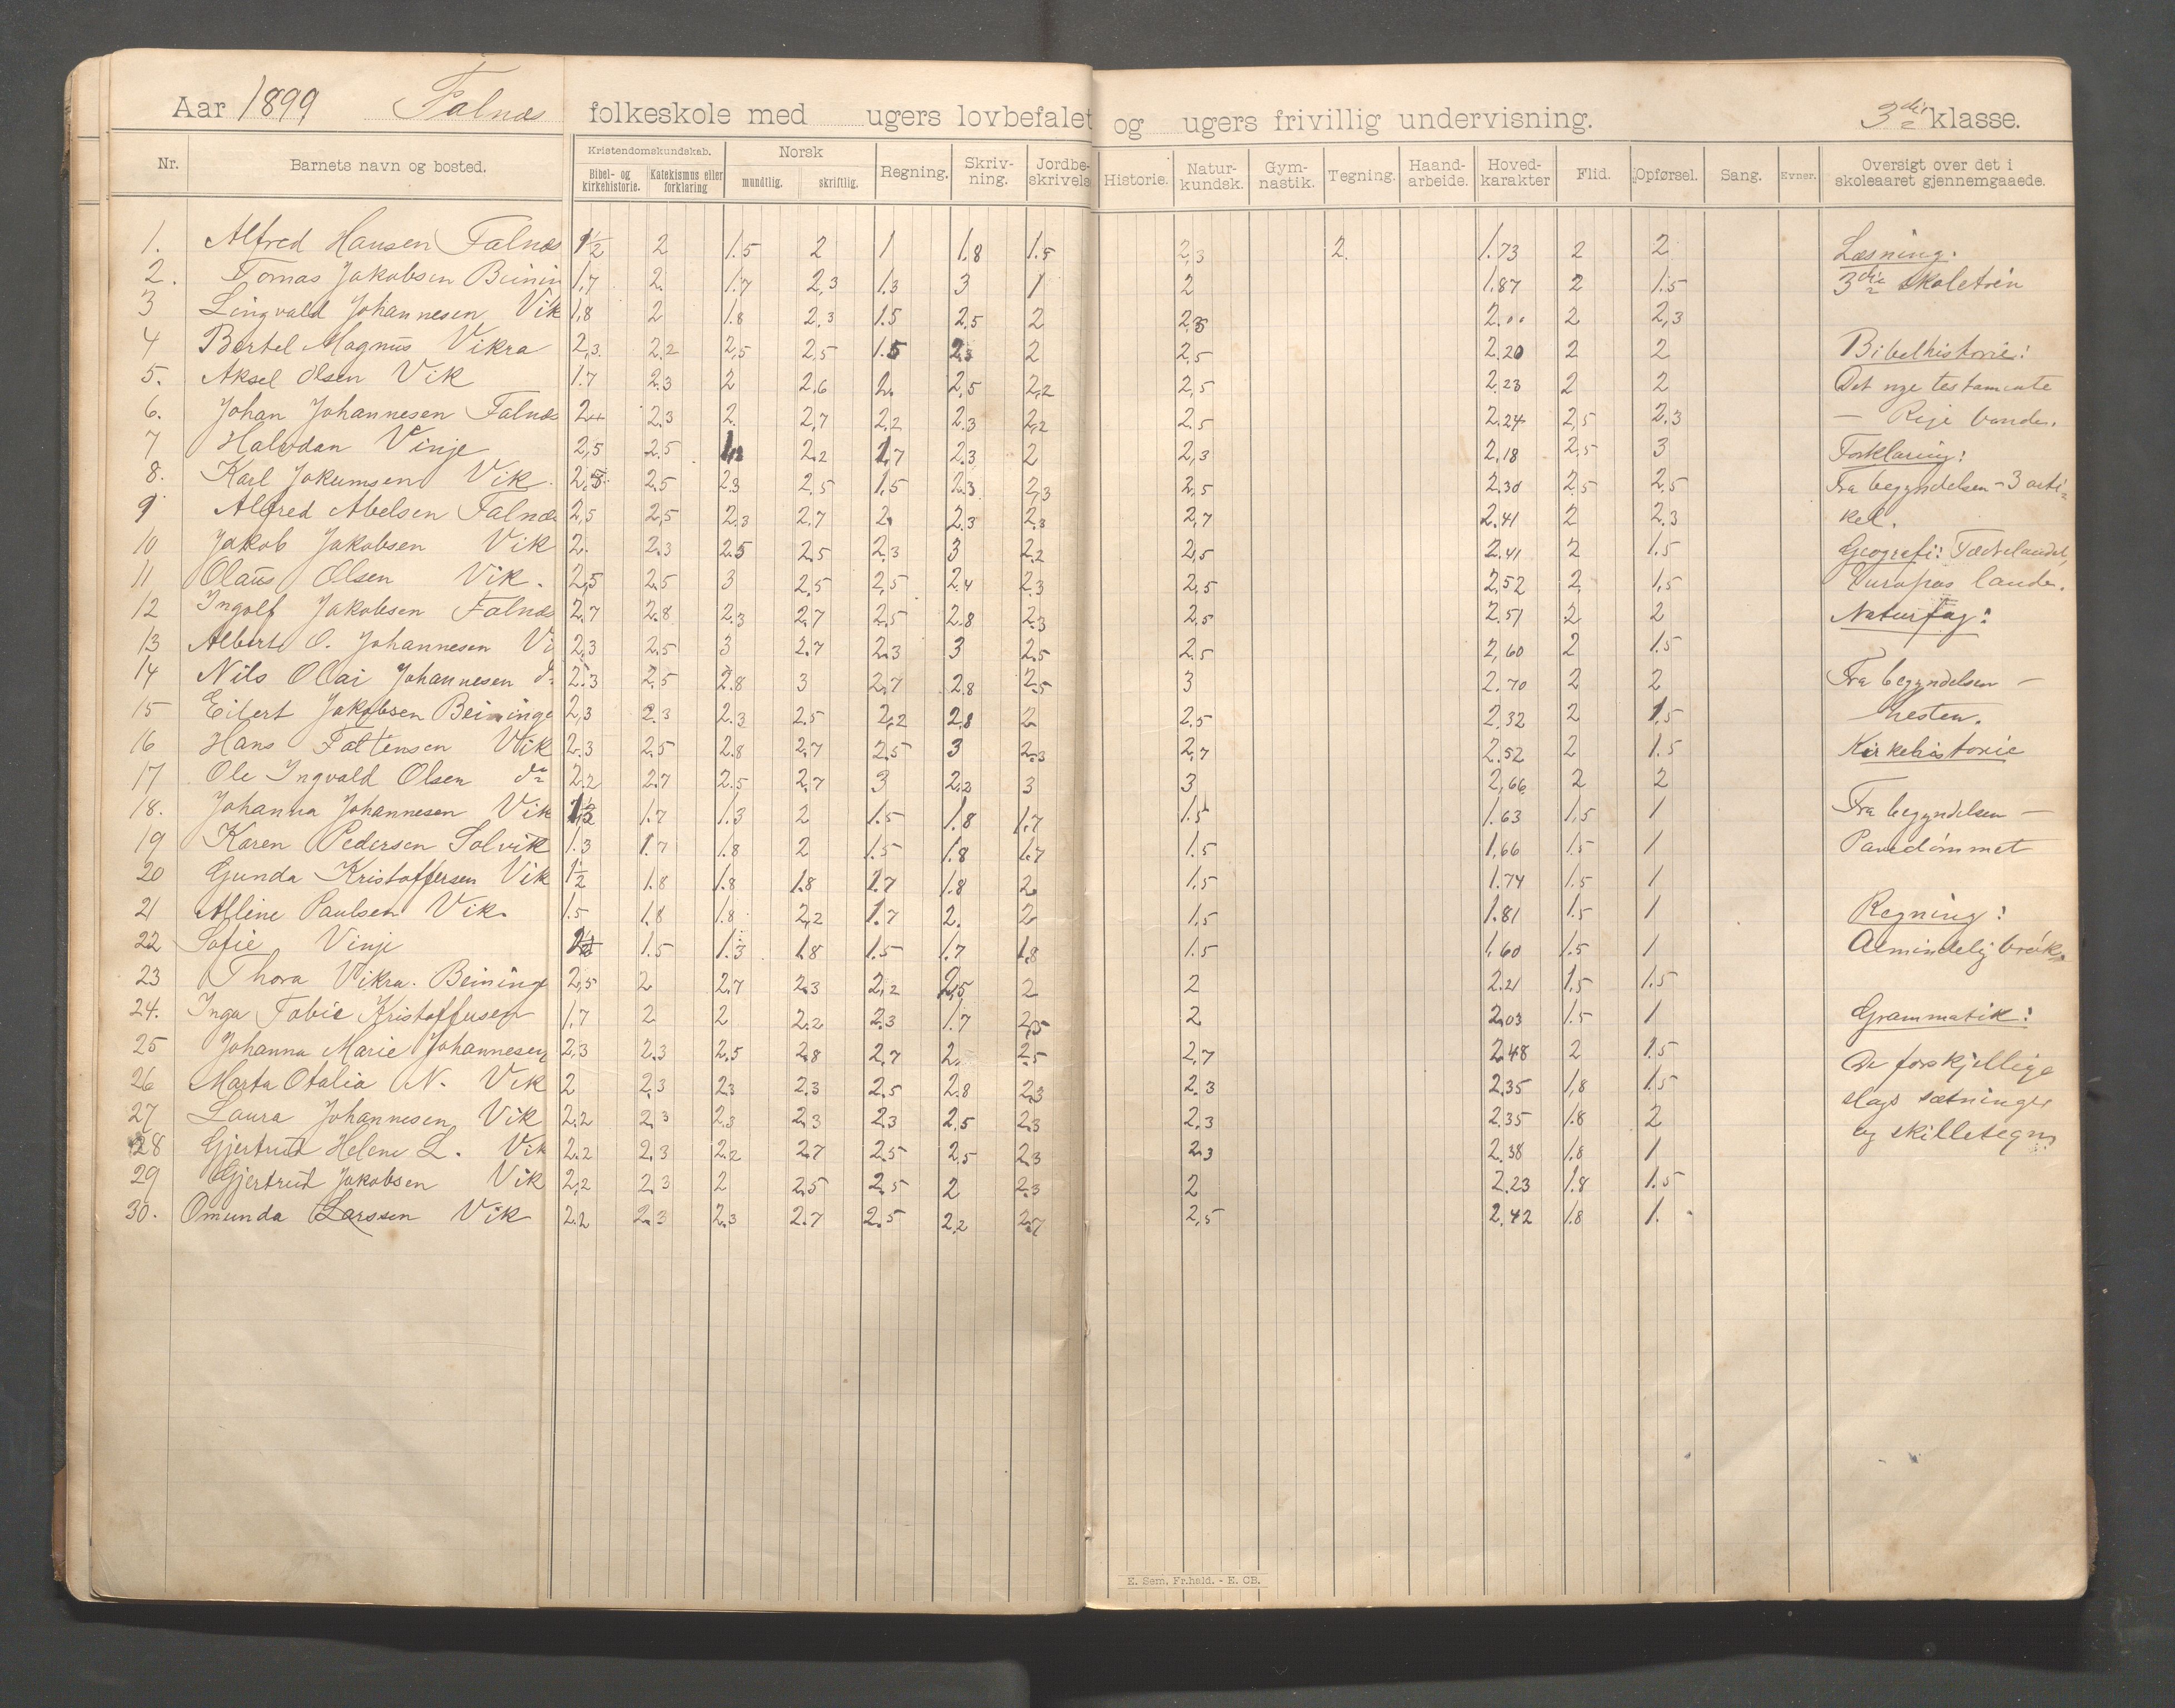 Aar 1899 Falnæs folkeskole med ugers lovbefalet og ugers frivillig undervisning. 3die klasse.
Nr. Barnets navn og bosted. Kristendomskundskab. Bibel- og kirkehistorie. Katekismus eller forklaring Norsk mundtlig. skriftlig. Regning. Skriv-ning. Jordbe-skrivels Historie. Natur-kundsk. Gym-nastik. Tegning. Haand-arbeide. Hoved-karakter Flid. Opførsel. Sang. Evner. Oversigt over det i skoleaaret gjennemgaaede.
1. Alfred Hansen Falnæs 1½ 2 1.5 2 1 1.8 1.5 2,3 2. 1.73 2 2 Læsning:
2. Tomas Jakobsen Beinin 1,7 2. 1.7 2,3 1.3 3 1 2 1.87 2 1.5 3die skoletrin
3 Lingvald Johannesen Vik 1,8 2 1.8 2,3 1.5 2,5 2 2.00 2 2,3
4 Bertel Magnus Vikra 2,3. 2.2 2,5 2,5 1.5 2.3 2 2,5 2.20 2 2 Bibelhistorie:
5. Aksel Olsen Vik 1.7 2.3 2 2.6 2. 2,5 2,2 2,5 2.23 2 2 Det nye testamente
6. Johan Johannesen Falnæs 2 2.3 2. 2,7 2,2 2.3 2,2 2.5 2.24 2,5 2.3 —
7 Halvdan Vinje 2,5 2.5 2.2 1,7 2.3 2 2,3 2.18 2,5 3 Forklaring:
8. Karl Jakumsen Vik. 2.5 2.3 2.5 1,5 2.3 2,3 2,5 2.30 2,5 2.5 Fra begyndelsen - 3 arti-
9 Alfred Abelsen Falnæs 2,5 2,5 2.3 2.7 2. 2.3 2.3 2,7 2.41 2 2.3 kel.
10 Jakob Jakobsen Vik 2. 2.3 2.5 2.5 2.3 3 2.2 2,5 2.41 2 1.5 Geografi: Fædrelandet,
11 Olaus Olsen Vik. 2,5 2.5 3 2,5 2,5 2.4 2.3 2,5 2,52 2, 1,5 Europas lande.
12 Ingolf Jakobsen Falnæs 2.7 2.8 2.3 2.7 2.5 2.8 2.3 2,5 2.51 2 2 Naturfag:
13 Albert O. Johannesen Vi 2,3 2.5 3 2.7 2.3 3 2.5 2.5 2,60 2 1.5
14 Nils Olai Johannesen do 2.3 2.5 2.8 3 2.7 2.8 2.5 3 2.70 2 2 Fra begyndelsen —
15 Eilert Jakobsen Beininge 2,3 2.3 2.3 2.5 2,2 2.8 2 2.5 2.32 2 1.5 hesten.
16 Hans Vik 2.3 2.5 2.8 2.7 2.5 3 2.3 2,7 2.52 2 1.5 Kirkehistorie
17 Ole Ingvald Olsen do 2.2 2.7 2.5 2.7 3 2,2 3 3 2,66 2 2
18. Johanna Johannesen Vik 1.7 1.3 2 1.5 1.8 1,7 1.5 1.63 1,5 1 Fra begyndelsen —
19 Karen Pedersen Solvik 1.3 1.7 1.8 2 1.5 1.8 1.7 1.5 1,66 1.5 1 Pavedømmet
20 Gunda Kristoffersen Vik 1½ 1.8 1.8 1.8 1.7 1.8 2 1,5 1.74 1.5 1
21 Alline Paulsen Vik. 1.5 1.8 1.8 2,2 1.7 2. 2 1.5 1.81 1.5 1 Regning:
22 Sofie Vinje 1.5 1.3 1.8 1.5 1.7 1.8 1.5 1,60 1.5 1 Almindelig brøk.
23 Thora Vikra. Beininge 2,5 2 2.7 2.3 2,2 2,5 2 2 2.21 1.5 1.5
24. Inga Tobie Kristoffersen 1,7 2 2 2.2 2.3 1.7 2,5 2 2,03 1.5 1 Grammatik:
25 Johanna Marie Johannesen 2,3 2.3 2.5 2.8 2.7 2. 2.5 2,7 2.48 2 1.5 De forskjellige
26 Marta Otalia N. Vik 2 2,3 2.3 2.3 2.5 2.8 2.3 2.3 2.35 1,8 1.5 slags sætninger
27 Laura Johannesen Vik 2.2 2.3 2.3 2.3 2.3 2,5 2.3 2.3 2.35 1.8 2 og skilletegn
28 Gjertrud Helene L. Vik 2.2 2.3 2.2 2.7 2.5 2,5 2.3 2.3 2.38 1.8 1
29 Gjertrud Jakobsen Vik 2,2 2.3 2 2,5 2.5 2 2.3 2 2.23 1.8 1.5
30. Omunda Larssen Vik 2.2 2.3 2.3 2.7 2.5 2,2 2.7 2,5 2.42 1.8 1.
E. Sem, Fr.hald. - E. CB.